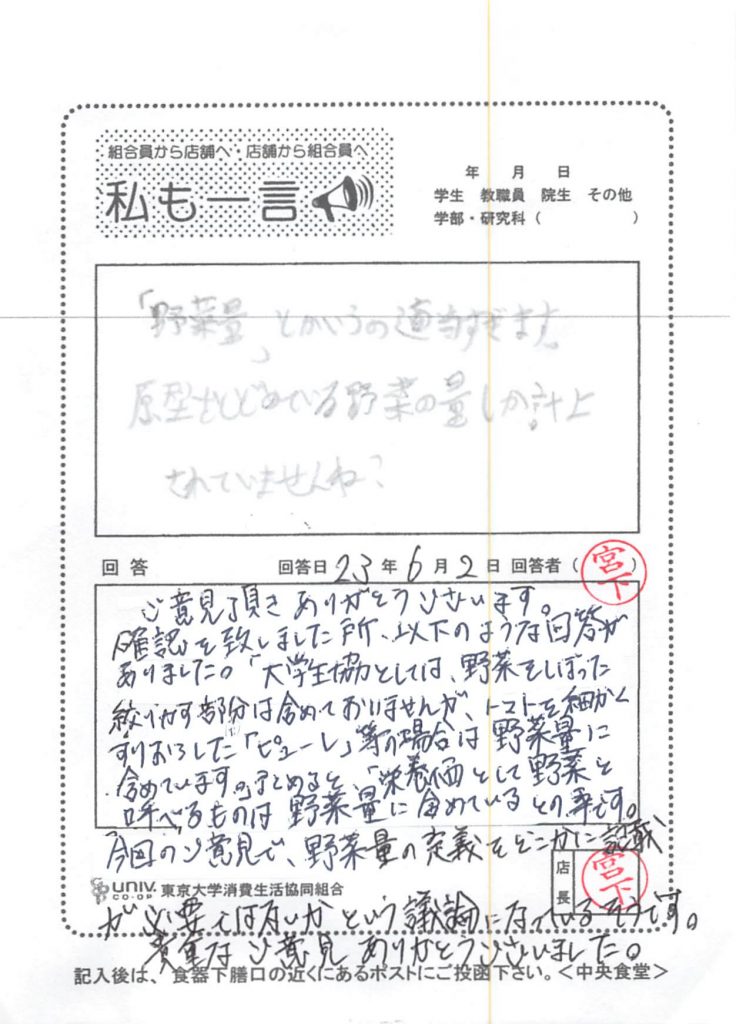 組合員から店舗へ・店舗から組合員へ
私も一言
年 月 日
学生 教職員 院生 その他
学部・研究科（ ）
「野菜量」とかいうの適当すぎます。
原型をとどめている野菜の量しか計上
されていませんね？
回答 回答日 23 年 6 月 2 日 回答者（宮下）
ご意見頂きありがとうございます。
確認を致しました所、以下のような回答が
ありました。「大学生協としては、野菜をしぼった
絞りカス部分は含めておりませんが、トマトを細かく
すりおろした「ピューレ」等の場合は野菜量に
含めています。」まとめると、「栄養面として野菜と
呼べるものは野菜量に含めているとの事です。
今回のご意見で、野菜量の定義をどこかに記載
店長 宮下
UNIV. CO-OP 東京大学消費生活協同組合
が必要ではないかという議論になっているそうです。
貴重なご意見ありがとうございました。
記入後は、食器下膳口の近くにあるポストにご投函下さい。＜中央食堂＞